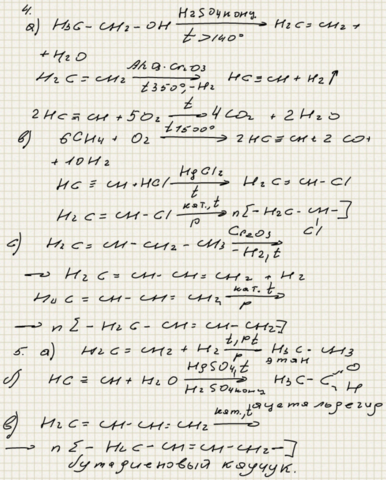 4.
а) H₃C – CH₂ – OH H₂SO₄ конц → t>140° H₂C = CH₂ +
+ H₂O
H₂C = CH₂ Al₂O₃·Cr₂O₃ → t350°, -H₂ HC≡CH + H₂↑
2HC≡CH + 5O₂ t → 4CO₂ + 2H₂O
в) 6CH₄ + O₂ t1500° → 2HC≡CH + 2CO +
+ 10H₂
HC≡CH + HCl HgCl₂ → t H₂C = CH – Cl
H₂C = CH – Cl кат., t → P n[–H₂C – CH–]
Cl
с) H₂C = CH – CH₂ – CH₃ Cr₂O₃ → -H₂, t
→ H₂C = CH – CH = CH₂ + H₂
H₂C = CH – CH = CH₂ кат. t → P
→ n[– H₂C – CH = CH – CH₂–]
5. а) H₂C = CH₂ + H₂ t, Pt → P H₃C – CH₃
этан
б) HC≡CH + H₂O HgSO₄, t → H₂SO₄ конц H₃C – C O H
ацетальдегид
в) H₂C = CH – CH = CH₂ кат., t →
→ n[– H₂C – CH = CH – CH₂ –]
бутадиеновый каучук.